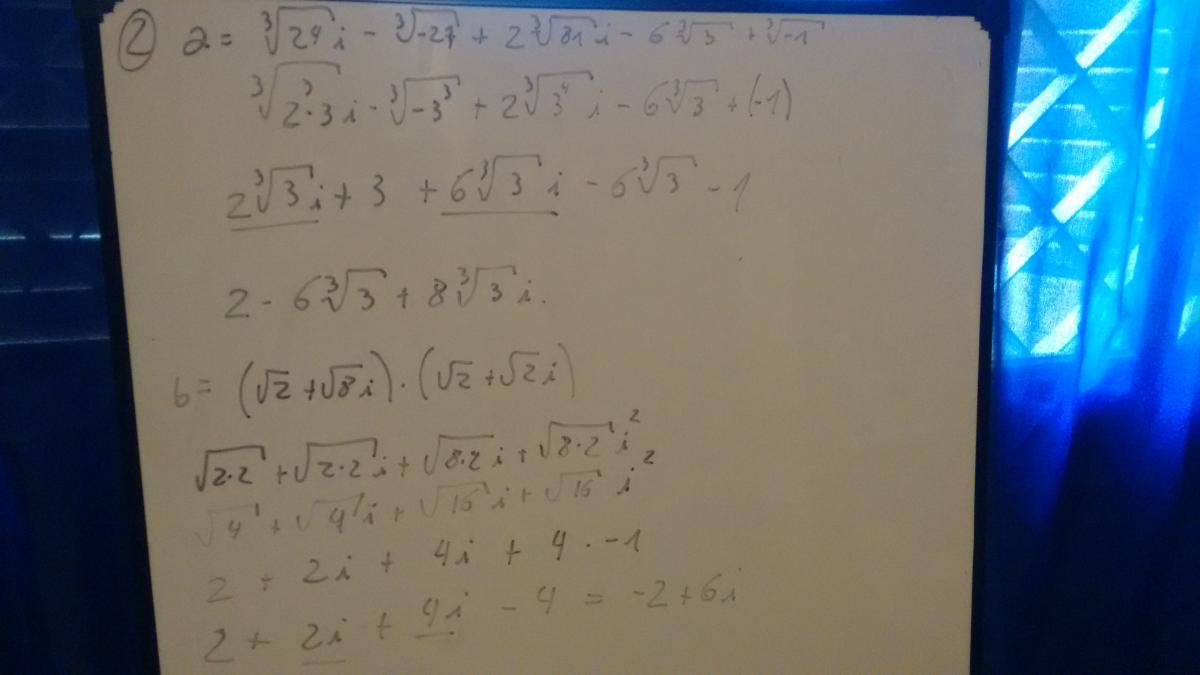 ② a = ∛24 i - ∛-27 + 2∛81 i - 6∛3 + ∛-1
∛2³·3 i - ∛-3³ + 2∛3⁴ i - 6∛3 + (-1)
2∛3 i + 3 + 6∛3 i - 6∛3 - 1
2 - 6∛3 + 8∛3 i.
b = (√2 + √8 i) · (√2 + √2 i)
√2·2 + √2·2 i + √8·2 i + √8·2 i²
√4 + √4 i + √16 i + √16 i²
2 + 2i + 4i + 4 · -1
2 + 2i + 4i - 4 = -2 + 6i